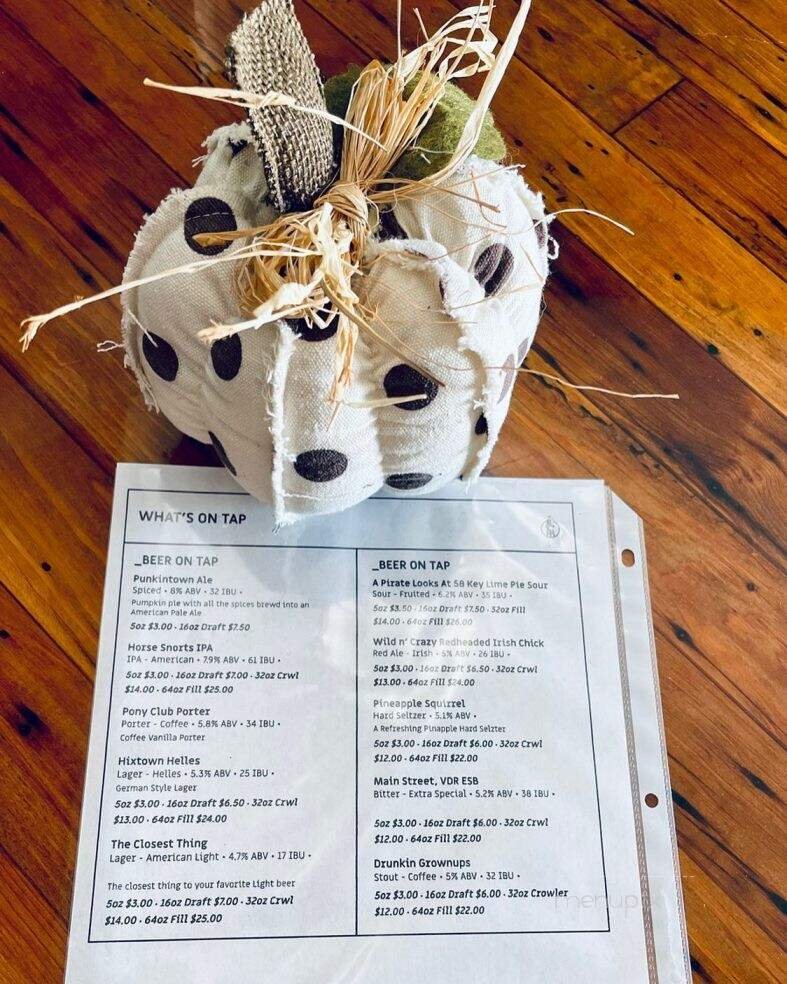 WHAT'S ON TAP
_BEER ON TAP
Punkintown Ale
Spiced • 8% ABV • 32 IBU •
Pumpkin pie with all the spices brewd into an
American Pale Ale
5oz $3.00 · 16oz Draft $7.50
Horse Snorts IPA
IPA - American • 7.9% ABV • 61 IBU •
5oz $3.00 · 16oz Draft $7.00 · 32oz Crwl
$14.00 · 64oz Fill $25.00
Pony Club Porter
Porter - Coffee • 5.8% ABV • 34 IBU •
Coffee Vanilla Porter
Hixtown Helles
Lager - Helles • 5.3% ABV • 25 IBU •
German Style Lager
5oz $3.00 · 16oz Draft $6.50 · 32oz Crwl
$13.00 · 64oz Fill $24.00
The Closest Thing
Lager - American Light • 4.7% ABV • 17 IBU •
The closest thing to your favorite Light beer
5oz $3.00 · 16oz Draft $7.00 · 32oz Crwl
$14.00 · 64oz Fill $25.00
_BEER ON TAP
A Pirate Looks At 58 Key Lime Pie Sour
Sour - Fruited • 6.2% ABV • 35 IBU •
5oz $3.50 · 16oz Draft $7.50 · 32oz Fill
$14.00 · 64oz Fill $26.00
Wild n' Crazy Redheaded Irish Chick
Red Ale - Irish • 5% ABV • 26 IBU •
5oz $3.00 · 16oz Draft $6.50 · 32oz Crwl
$13.00 · 64oz Fill $24.00
Pineapple Squirrel
Hard Seltzer • 5.1% ABV •
A Refreshing Pinapple Hard Selzter
5oz $3.00 · 16oz Draft $6.00 · 32oz Crwl
$12.00 · 64oz Fill $22.00
Main Street, VDR ESB
Bitter - Extra Special • 5.2% ABV • 38 IBU •
5oz $3.00 · 16oz Draft $6.00 · 32oz Crwl
$12.00 · 64oz Fill $22.00
Drunkin Grownups
Stout - Coffee • 5% ABV • 32 IBU •
5oz $3.00 · 16oz Draft $6.00 · 32oz Crowler
$12.00 · 64oz Fill $22.00